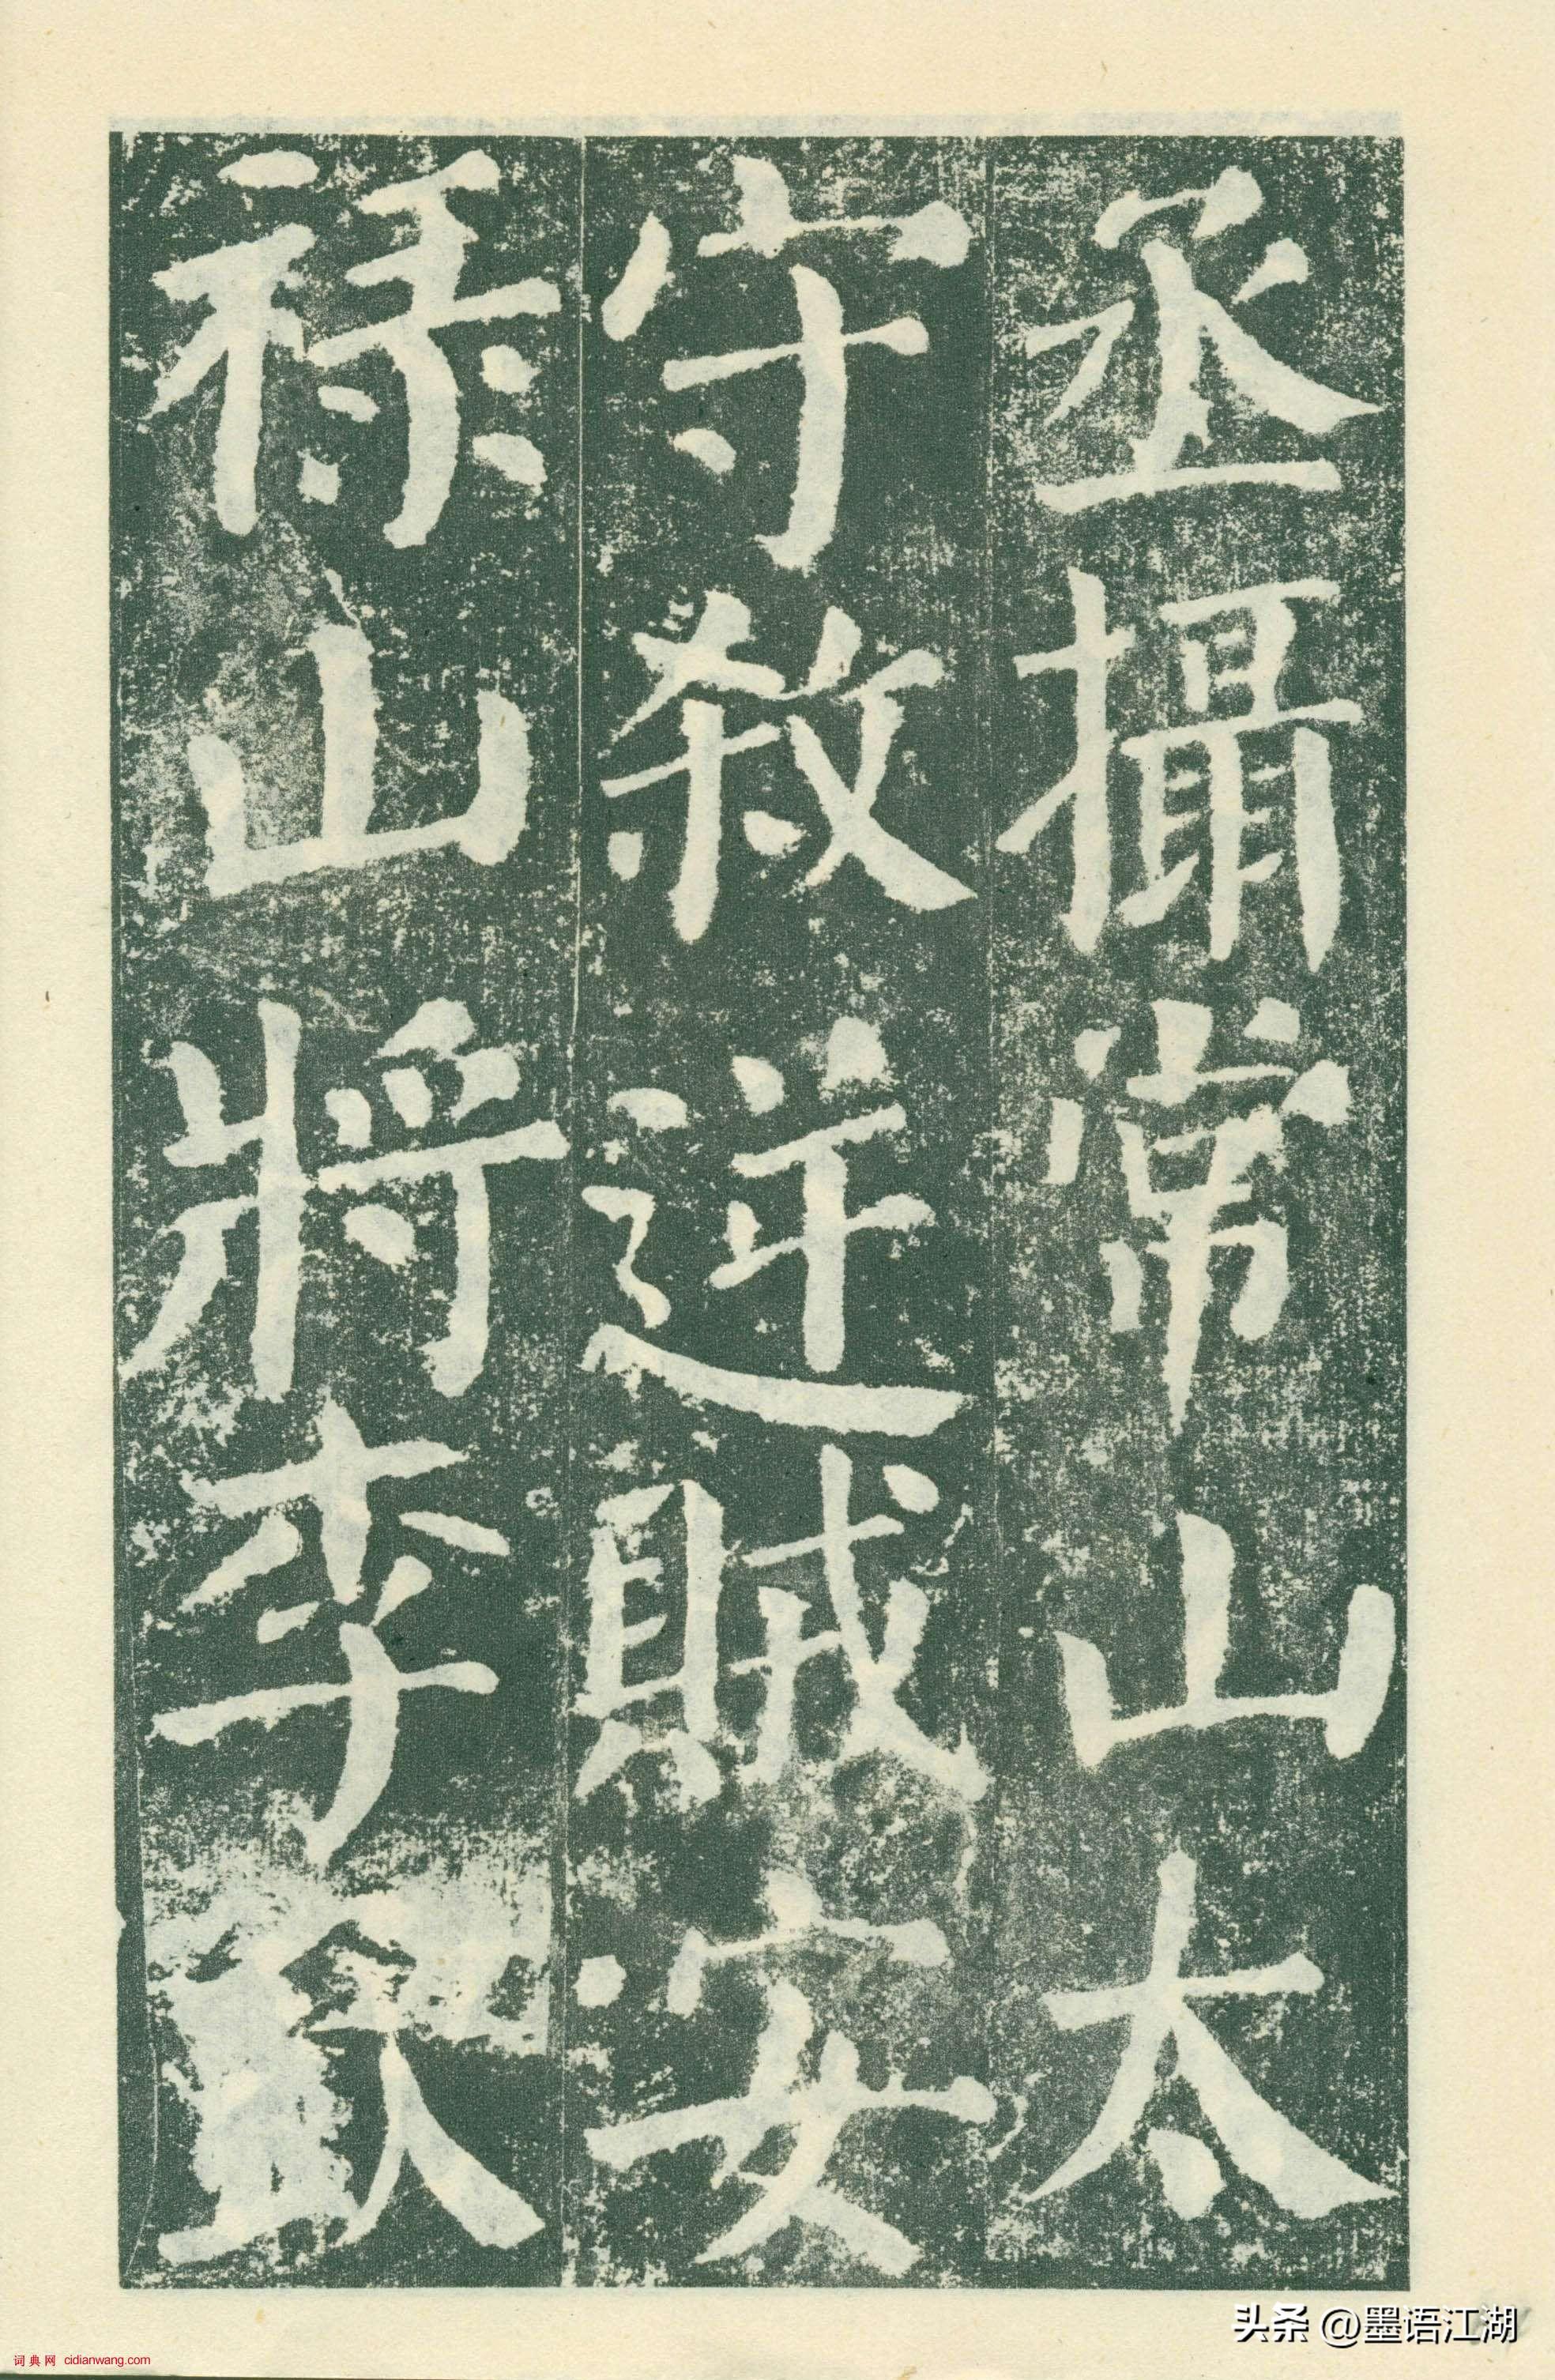 丞攝常山太
守殺逆賊安
禄山將李欽
头条 @墨语江湖
词典网 cidianwang.com